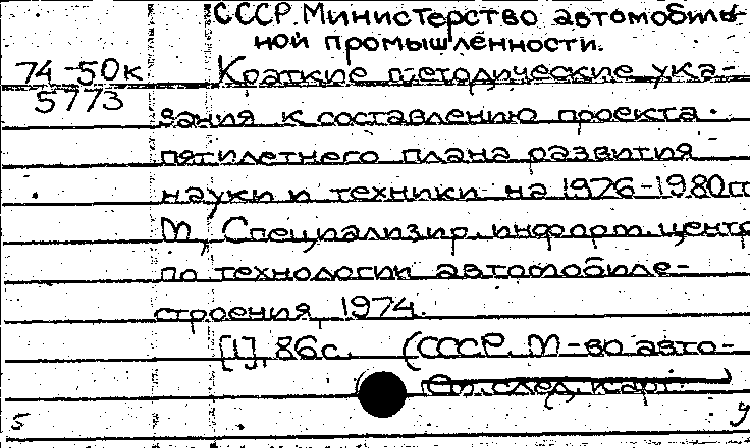 СССР. Министерство автомобиль-
ной промышленности.
74-50к Краткие методические ука-
5773
зания к составлению проекта
пятилетнего плана развития
науки и техники на 1976-1980гг
М., Специализир. информ. центр
по технологии автомобиле-
строения, 1974.
[1], 86с. (СССР. М-во авто-
См. след. карт.
5